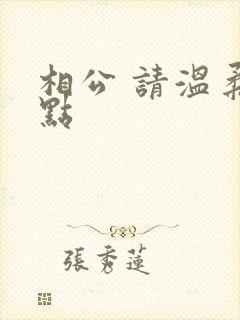 相公 請溫柔
點
張秀蓮